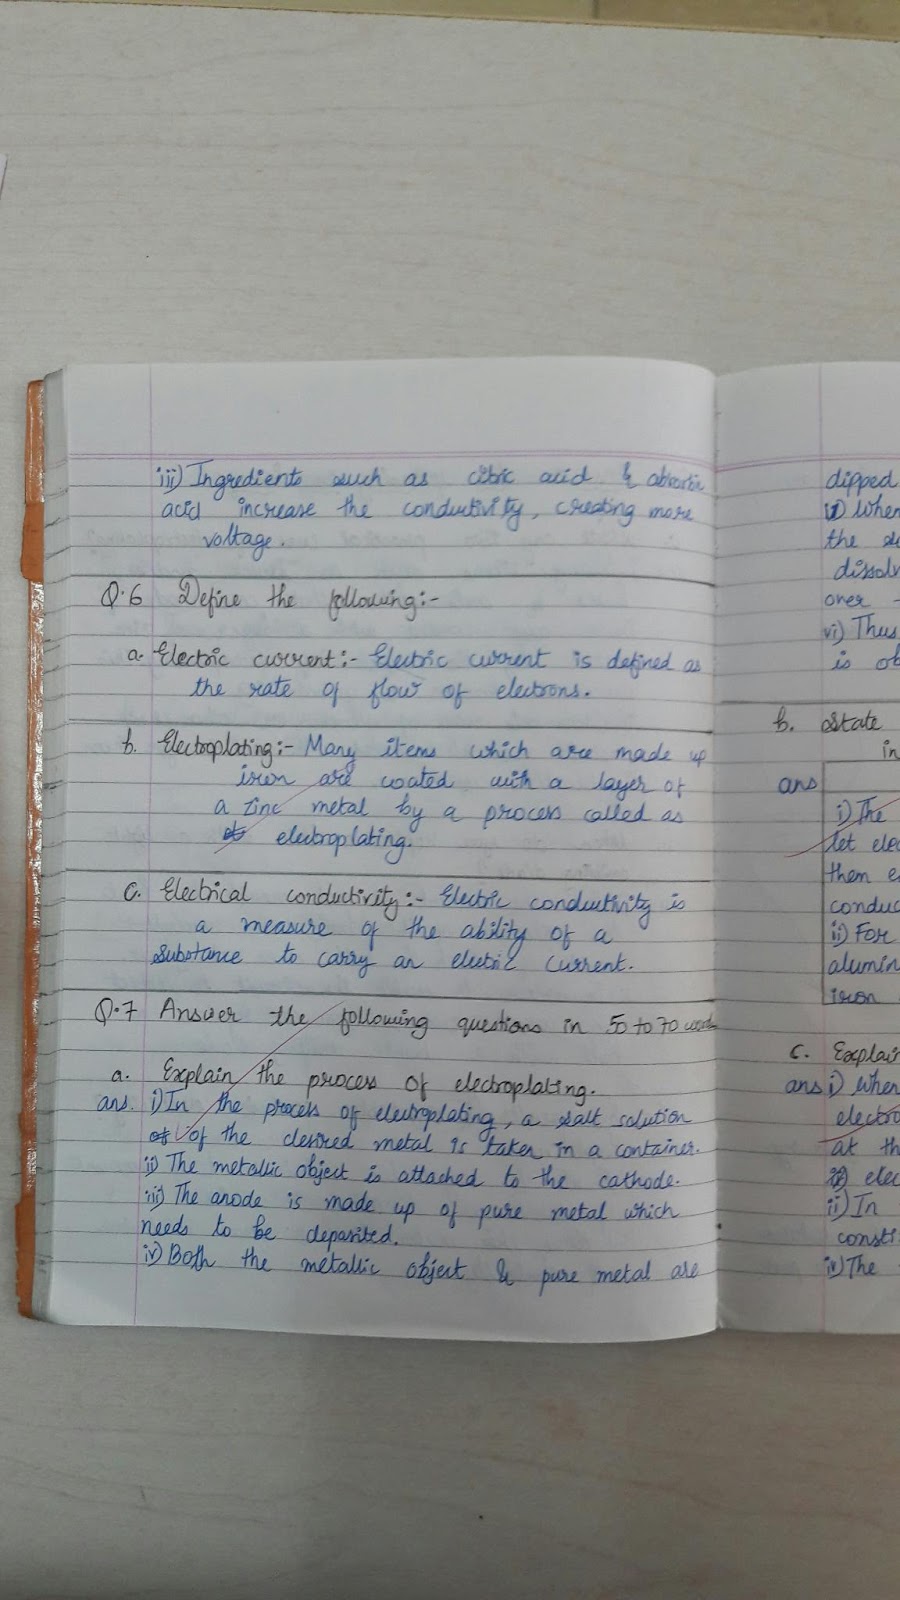 iii) Ingredients such as citric acid &
acid increase the conductivity, creating more
voltage.
Q.6 Define the following:-
a. Electric current:- Electric current is defined as
the rate of flow of electrons.
b. Electroplating:- Many items which are made up
iron are coated with a layer of
a zinc metal by a process called as
electroplating.
c. Electrical conductivity:- Electric conductivity is
a measure of the ability of a
substance to carry an electric current.
Q.7 Answer the following questions in 50 to 70 words
a. Explain the process of electroplating.
ans. i) In the process of electroplating, a salt solution
of the desired metal is taken in a container.
ii) The metallic object is attached to the cathode.
iii) The anode is made up of pure metal which
needs to be deposited.
iv) Both the metallic object & pure metal are
dipped
When
the
over
vi) Thus
is
b. State
in
ans
i) The
let
them
ii) For
iron
c.
ans i) When
at
ii) In
iv) The